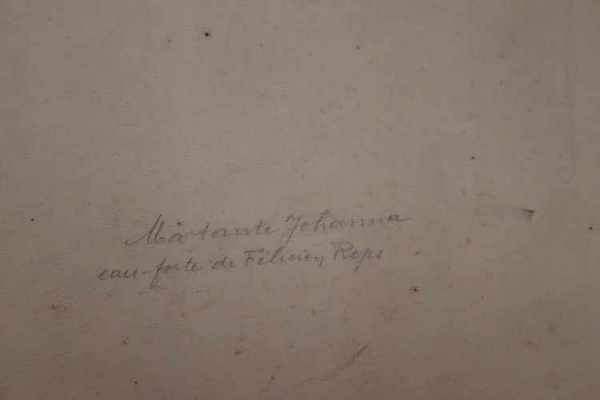 Mà tante Johanna
eau-forte de Félicien Rops